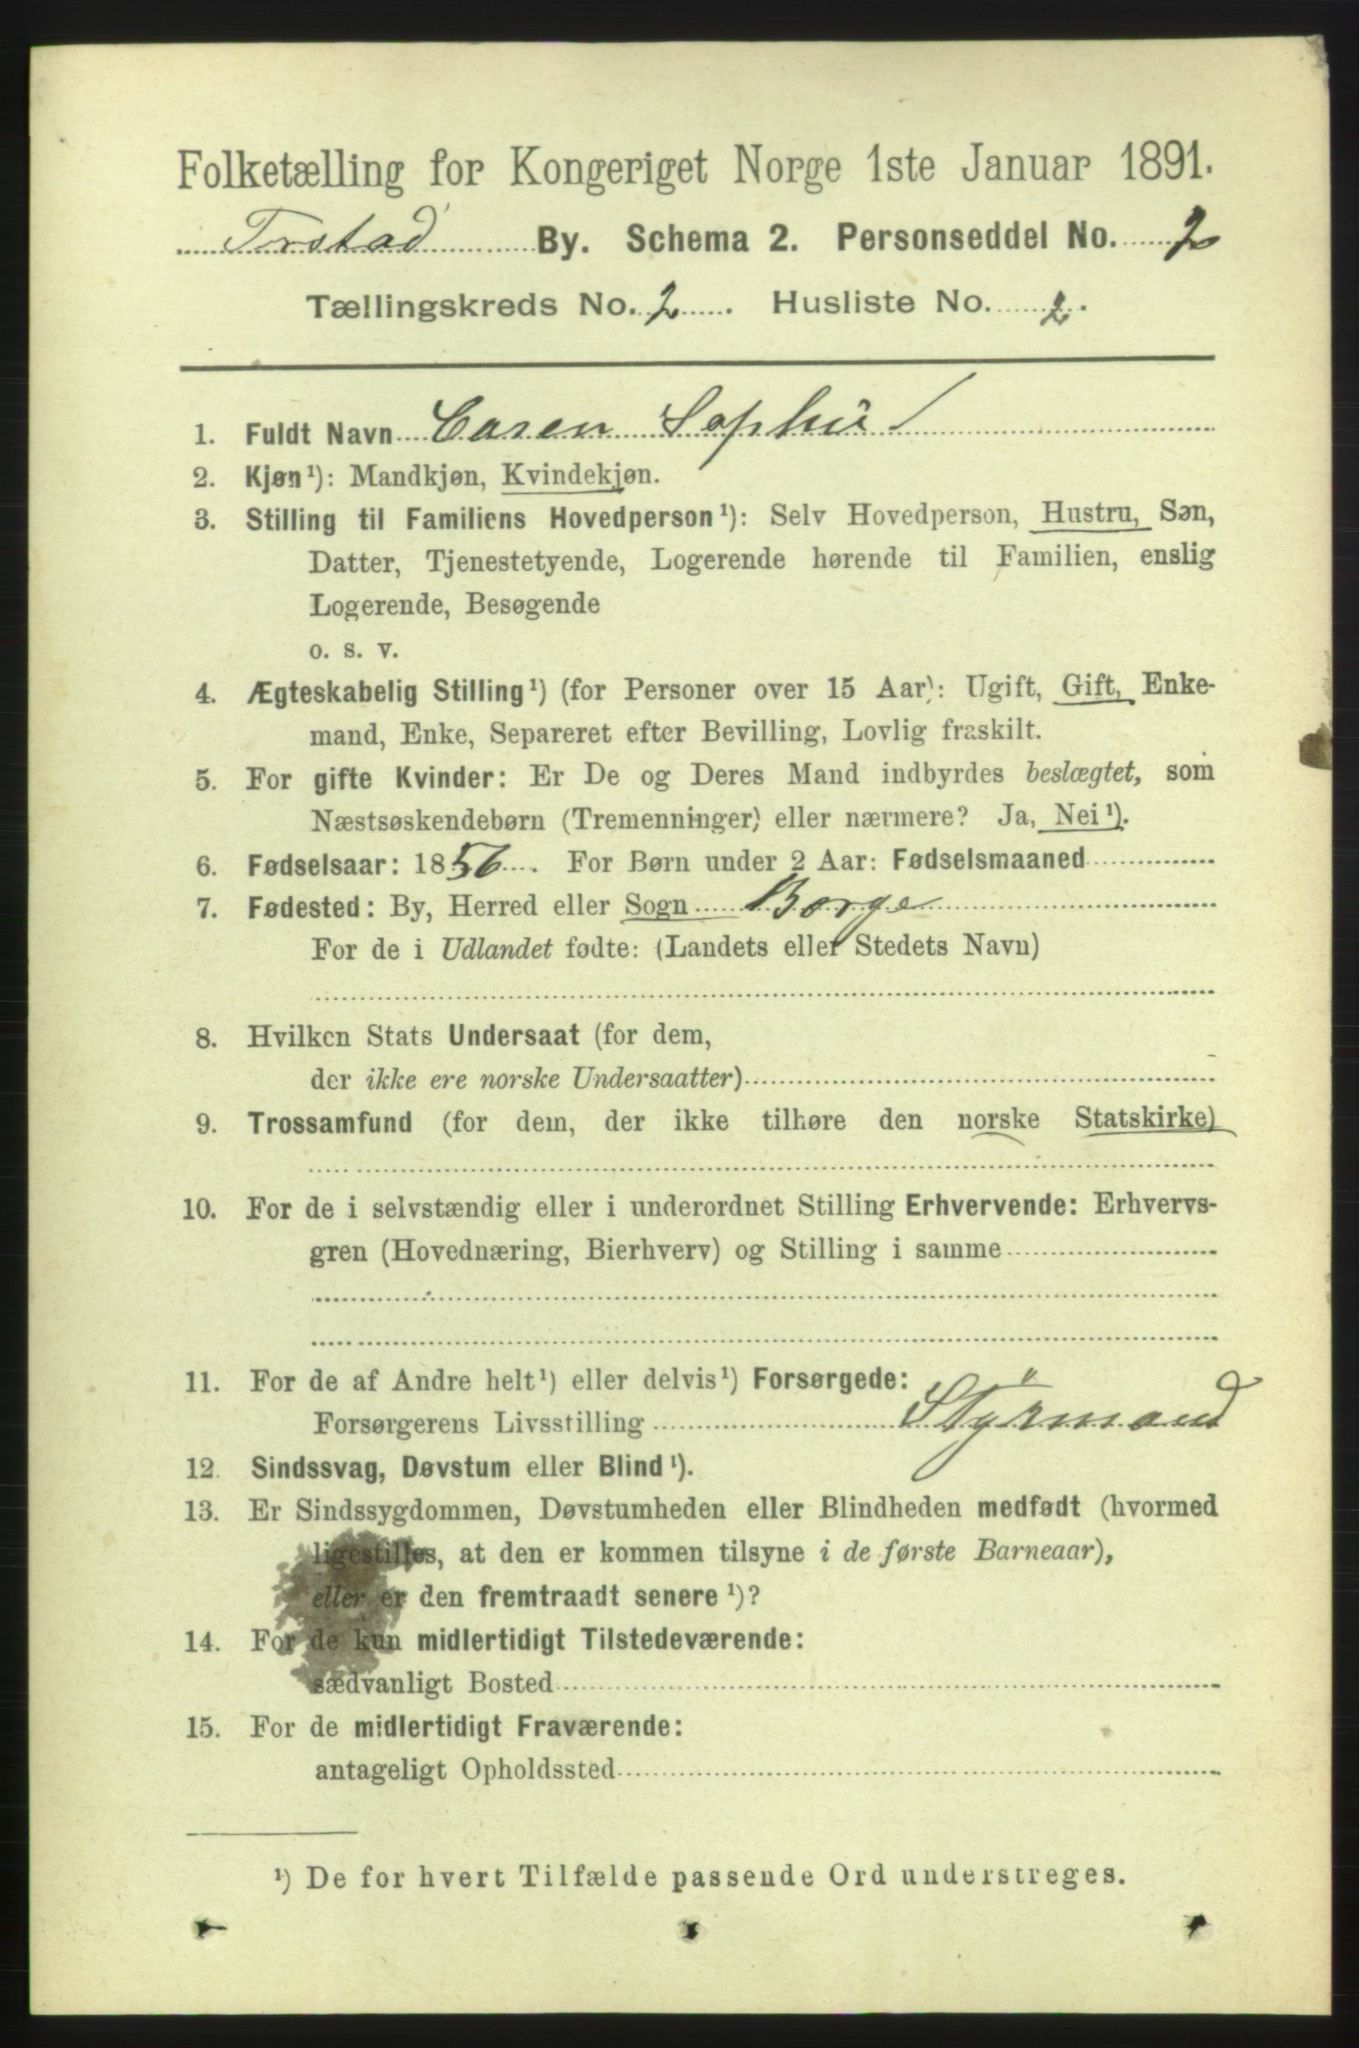 Folketælling for Kongeriget Norge 1ste Januar 1891.
Frstad By. Schema 2. Personseddel No. 2
Tællingskreds No. 2. Husliste No. 2.
1. Fuldt Navn Caren Sophie
2. Kjøn¹): Mandkjøn, Kvindekjøn.
3. Stilling til Familiens Hovedperson¹): Selv Hovedperson, Hustru, Søn,
Datter, Tjenestetyende, Logerende hørende til Familien, enslig
Logerende, Besøgende
o. s. v.
4. Ægteskabelig Stilling¹) (for Personer over 15 Aar): Ugift, Gift, Enke-
mand, Enke, Separeret efter Bevilling, Lovlig fraskilt.
5. For gifte Kvinder: Er De og Deres Mand indbyrdes beslægtet, som
Næstsøskendebørn (Tremenninger) eller nærmere? Ja, Nei¹).
6. Fødselsaar: 1856. For Børn under 2 Aar: Fødselsmaaned
7. Fødested: By, Herred eller Sogn Borge
For de i Udlandet fødte: (Landets eller Stedets Navn)
8. Hvilken Stats Undersaat (for dem,
der ikke ere norske Undersaatter)
9. Trossamfund (for dem, der ikke tilhøre den norske Statskirke)
10. For de i selvstændig eller i underordnet Stilling Erhvervende: Erhvervs-
gren (Hovednæring, Bierhverv) og Stilling i samme
11. For de af Andre helt¹) eller delvis¹) Forsørgede:
Forsørgerens Livsstilling Styrmand
12. Sindssvag, Døvstum eller Blind¹).
13. Er Sindssygdommen, Døvstumheden eller Blindheden medfødt (hvormed
ligestilles, at den er kommen tilsyne i de første Barneaar),
eller er den fremtraadt senere¹)?
14. For de kun midlertidigt Tilstedeværende:
sædvanligt Bosted
15. For de midlertidigt Fraværende:
antageligt Opholdssted
¹) De for hvert Tilfælde passende Ord understreges.